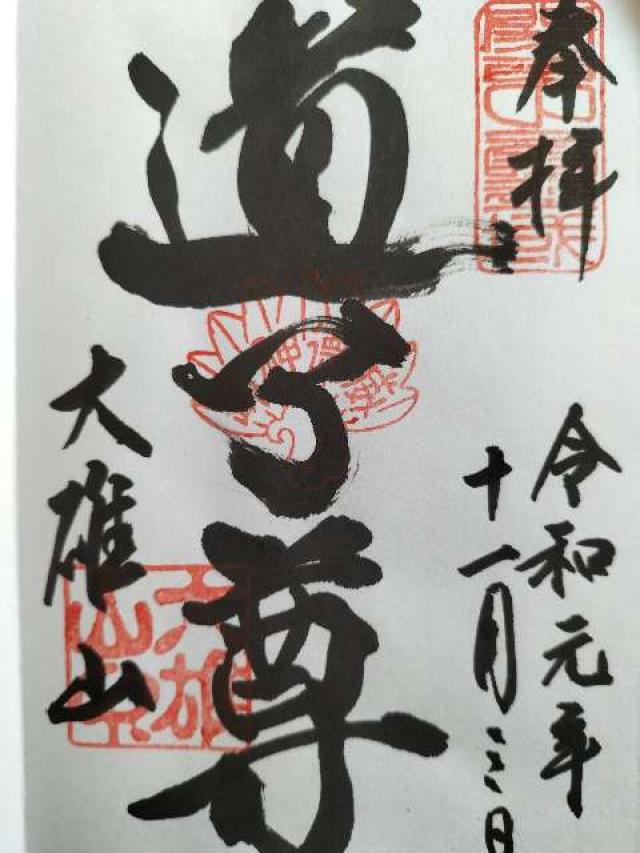 奉拝
令和元年
十一月三日
道了尊
大雄山
大雄